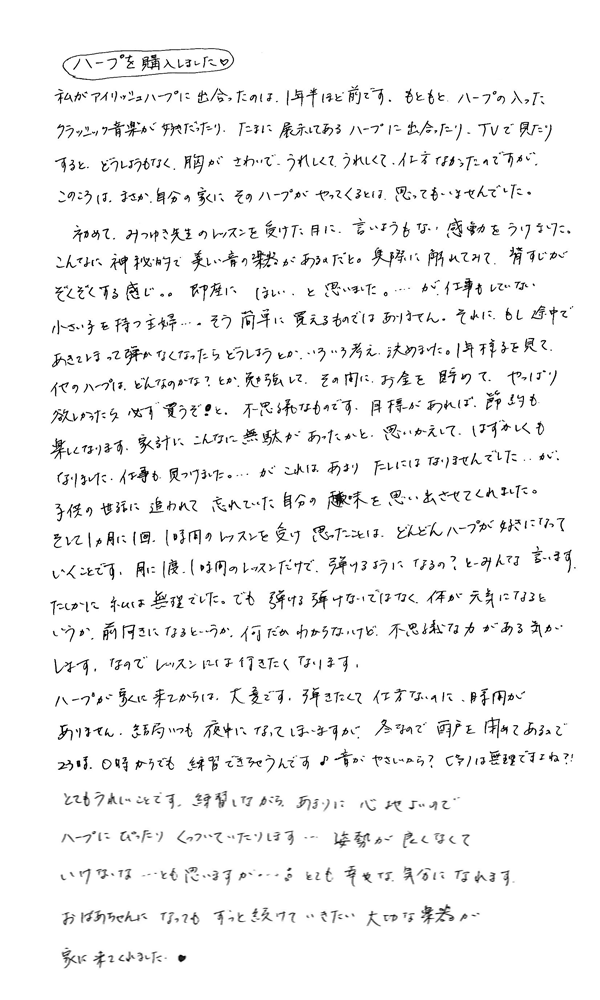 ハープを購入しました♡
私がアイリッシュハープに出合ったのは、1年半ほど前です。もともと、ハープの入った
クラシック音楽が好きだったり、たまに展示してあるハープに出合ったり、TVで見たり
すると、どうしようもなく、胸がさわいで、うれしくてうれしくて、仕方なかったのですが、
このころは、まさか、自分の家にそのハープがやってくるとは、思ってもいませんでした。
初めて、みつゆき先生のレッスンを受けた日に、言いようもない感動をうけました。
こんなに神秘的で美しい音の楽器があるのだと。実際に触れてみて、背すじが
ぞくぞくする感じ。。即座にほしい、と思いました。…が、仕事もしていない
小さい子を持つ主婦…。そう簡単に買えるものではありません。それに、もし途中で
あきてしまって弾かなくなったらどうしようとか、いろいろ考え、決めました。1年様子を見て、
他のハープは、どんなのかな?とか、勉強して、その間に、お金を貯めて、やっぱり
欲しかったら、必ず買うぞ!と。不思議なものです。目標があれば、節約も
楽しくなります。家計にこんなに無駄があったかと、思いかえして、はずかしくも
なりました。仕事も見つけました。…がこれは、あまりたしにはなりませんでした…が、
子供の世話に追われて忘れていた自分の趣味を思い出させてくれました。
そして1ヵ月に1回、1時間のレッスンを受け思ったことは、どんどんハープが好きになって
いくことです。月に1度、1時間のレッスンだけで、弾けるようになるの?とみんな言います。
たしかに私は無理でした。でも弾ける弾けないではなく、体が元気になると
いうか、前向きになるというか、何だかわからないけど、不思議な力がある気が
します。なのでレッスンには行きたくなります。
ハープが家に来てからは、大変です。弾きたくて仕方ないのに、時間が
ありません。結局いつも夜中になってしまいますが、冬なので雨戸を閉めてあるので
23時、0時からでも練習できちゃうんです♪音がやさしいから?ピアノは無理ですよね?!
とてもうれしいことです。練習しながら、あまりに心地よいので
ハープにぴったりくっついていたりします…姿勢が良くなくて
いけないな…とも思いますが…。とても幸せな気分になれます。
おばあちゃんになってもずっと続けていきたい大切な楽器が
家に来てくれました。♥